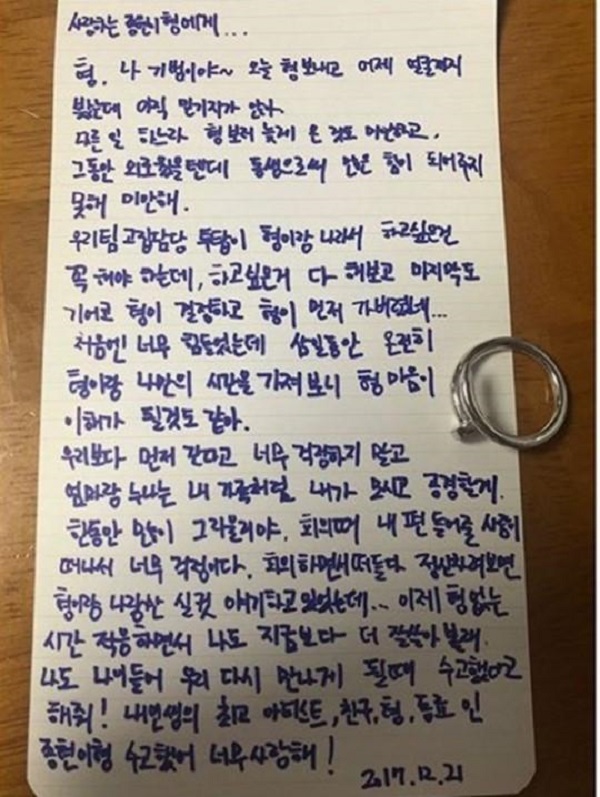 사랑하는 종현이형에게...
형. 나 기범이야~ 오늘 형보내고 어제 얼굴까지
봤는데 아직 믿기지가 않아.
다른 일 하느라 형 보러 늦게 온 것도 미안하고,
그동안 외로웠을텐데 동생으로써 많은 힘이 되어주지
못해 미안해.
우리팀 고집담당 투탑이 형이랑 나라서 하고싶은건
꼭 해야 하는데, 하고싶은거 다 해보고 마지막도
기어코 형이 결정하고 형이 먼저 가버렸네...
처음엔 너무 힘들었는데 삼일동안 온전히
형이랑 나만의 시간을 가져보니 형 마음이
이해가 될것도 같아.
우리보다 먼저 간다고 너무 걱정하지 말고
엄마랑 누나는 내 가족처럼 내가 모시고 공경할게.
한동안 많이 그리울거야. 회의때 내 편 들어줄 사람이
떠나서 너무 걱정이다. 회의하면서 떠들다 정신차려보면
형이랑 나랑만 실컷 얘기하고 있었는데... 이제 형 없는
시간 적응하면서 나도 지금보다 더 잘살아 볼래.
나도 나이들어 우리 다시 만나게 될때 수고했다고
해줘! 내인생의 최고 아티스트, 친구, 형, 동료 인
종현이형 수고했어 너무 사랑해!
2017.12.21